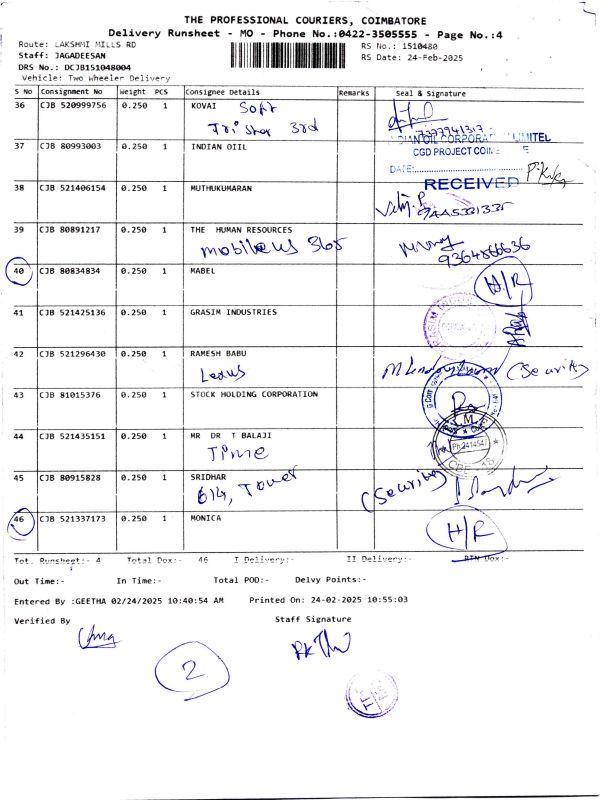 THE PROFESSIONAL COURIERS, COIMBATORE
Delivery Runsheet - MO - Phone No.:0422-3505555 - Page No.:4
Route: LAKSHMI MILLS RD
RS No.: 1510480
Staff: JAGADEESAN
RS Date: 24-Feb-2025
DRS No.: DCJB151048004
Vehicle: Two Wheeler Delivery
S No Consignment No Weight PCS Consignee Details Remarks Seal & Signature
36 CJB 520999756 0.250 1 KOVAI Soft
Tristar 3rd
7377941317
37 CJB 80993003 0.250 1 INDIAN OIIL
INDIAN OIL CORPORATION LIMITED
CGD PROJECT
DATE:
RECEIVED
38 CJB 521406154 0.250 1 MUTHUKUMARAN
39 CJB 80891217 0.250 1 THE HUMAN RESOURCES
mobileus 365
9364866636
40 CJB 80834834 0.250 1 MABEL
H/R
41 CJB 521425136 0.250 1 GRASIM INDUSTRIES
42 CJB 521296430 0.250 1 RAMESH BABU
Lexus
(Security)
43 CJB 81015376 0.250 1 STOCK HOLDING CORPORATION
44 CJB 521435151 0.250 1 MR DR T BALAJI
Time
45 CJB 80915828 0.250 1 SRIDHAR
614, Tower
(Security)
46 CJB 521337173 0.250 1 MONICA
H/R
Tot. Runsheet:- 4 Total Dox:- 46 I Delivery:- II Delivery:- RTN Dox:-
Out Time:- In Time:- Total POD:- Delvy Points:-
Entered By :GEETHA 02/24/2025 10:40:54 AM Printed On: 24-02-2025 10:55:03
Verified By Staff Signature
2